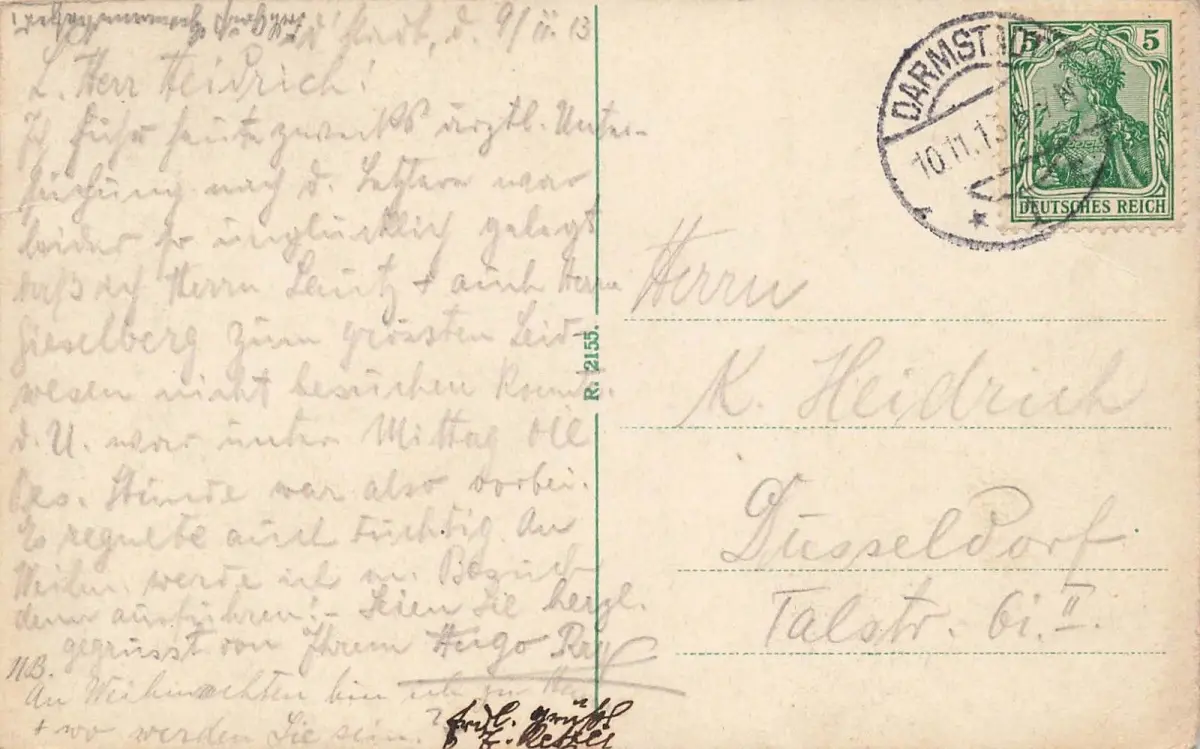 d' Stadt, d. 9/11. 13
L. Herr Heidrich!
Ich fuhr heute zwecks ärztl. Unter-
suchung nach d. Letztere war
leider so unglücklich gelegt
daß ich Herrn Lautz + auch Herrn
Gieselberg zum grössten Leid-
wesen nicht besuchen konnte.
d. U. war unter Mittag die
Bes. Stunde war also vorbei.
Es regnete auch tüchtig. An
Weihn. werde ich m. Besuch
dann ausführen! - Seien Sie herzl.
gegrüsst von Ihrem Hugo
NB.
An Weihnachten bin ich zu
+ wo werden Sie sein?
frdl. Grüße
R. 2155.
DARMSTADT
10.11.13
5 5
DEUTSCHES REICH
Herrn
K. Heidrich
Düsseldorf
Talstr. 61. II.